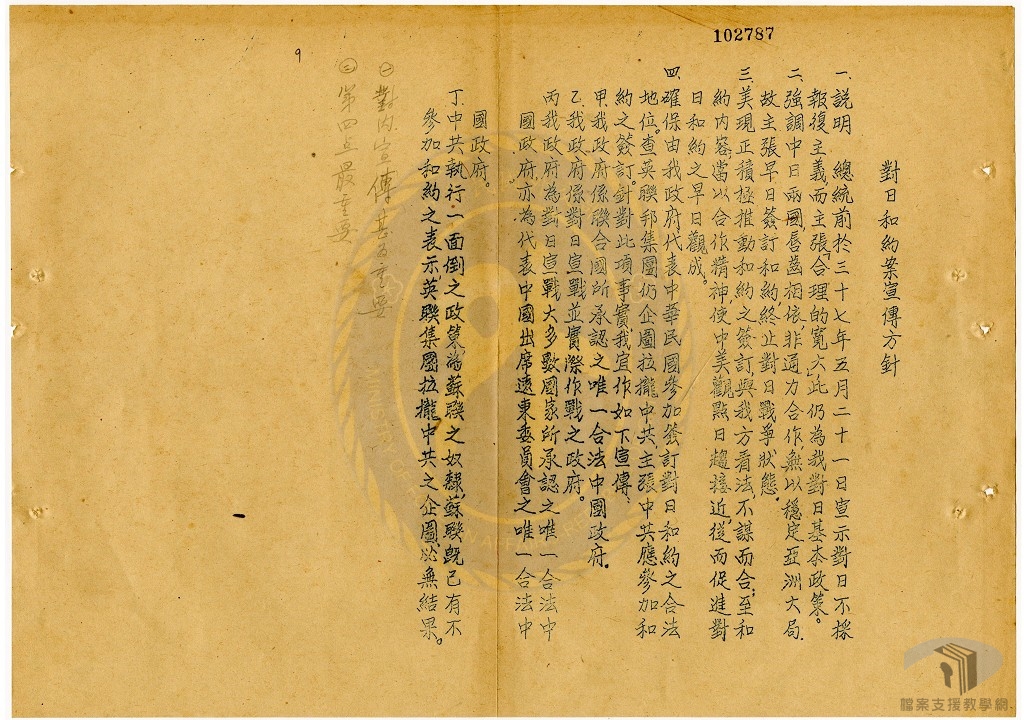 102787
對日和約案宣傳方針
一、說明 總統前於三十七年五月二十一日宣示對日不採
報復主義而主張「合理的寬大」此仍為我對日基本政策。
二、強調中日兩國唇齒相依,非通力合作,無以穩定亞洲大局,
故主張早日簽訂和約,終止對日戰爭狀態。
三、美現正積極推動和約之簽訂與我方看法,不謀而合;至和
約內容,當以合作精神,使中美觀點日趨接近,從而促進對
日和約之早日觀成。
四、確保由我政府代表中華民國參加簽訂對日和約之合法
地位。查英聯邦集團仍企圖拉攏中共,主張中共應參加和
約之簽訂。針對此項事實,我宜作如下宣傳、
甲、我政府係聯合國所承認之唯一合法中國政府。
乙、我政府係對日宣戰並實際作戰之政府。
丙、我政府為對日宣戰大多數國家所承認之唯一合法中
國政府,亦為代表中國出席遠東委員會之唯一合法中
國政府。
丁、中共執行一面倒之政策,為蘇聯之奴隸,蘇聯既已有不
參加和約之表示,英聯集團拉攏中共之企圖,必無結果。
㊀對內宣傳甚為重要
㊁第四点最重要
9
檔案支援教學網